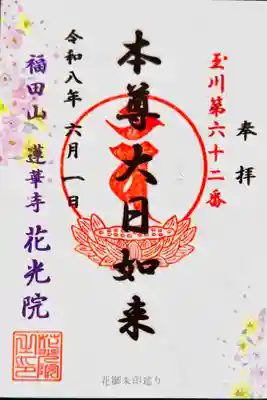 奉拝
玉川第六十二番
本尊大日如来
令和八年 六月 一日
福田山 蓮華寺 花光院
花御朱印巡り